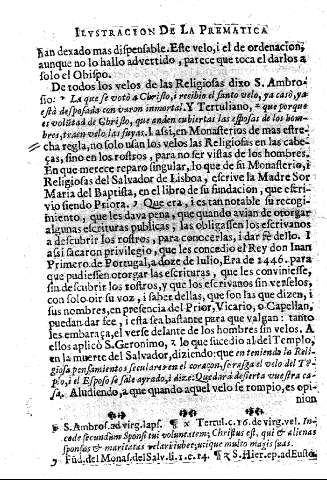 ILVSTRACION DE LA PREMATICA
han dexado mas dispensable. Este velo, i el de ordenacion,
aunque no lo hallo advertido, parece que toca el darlos a
solo el Obispo.
De todos los velos de las Religiosas dixo S. Ambro-
sio: La que se votò a Christo, i recibio el santo velo, ya casò, ya
està desposada con varon inmortal. Y Tertuliano, que porque
es volũtad de Christo, que anden cubiertas las esposas de los hom-
bres, traen velo las suyas. I assi, en Monasterios de mas estre-
cha regla, no solo usan los velos las Religiosas en las cabe-
ças, sino en los rostros, para no ser vistas de los hombres.
En que merece reparo singular, lo que de su Monasterio, i
Religiosas del Salvador de Lisboa, escrive la Madre Sor
Maria del Baptista, en el libro de su fundacion, que escri-
vio siendo Priora. Que era, i es tan notable su recogi-
miento, que les dava pena, que quando avian de otorgar
algunas escrituras publicas, las obligassen los escrivanos
a descubrir los rostros, para conocerlas, i dar fe dello. I
assi sacaron privilegio, que les concedio el Rey don Iuan
Primero de Portugal, a doze de Iulio, Era de 1446. para
que pudiessen otorgar las escrituras, que les conviniesse,
sin descubrir los rostros, y que los escrivanos sin verselos,
con solo oir su voz, i saber dellas, que son las que dizen, i
sus nombres, en presencia del Prior, Vicario, o Capellan,
puedan dar fee, i esta sea bastante para que valgan: tanto
les embaraça, el verse delante de los hombres sin velos. A
ellos aplicò S. Geronimo, lo que sucedio al del Templo,
en la muerte del Salvador, diziendo: que en teniendo la Reli-
giosa pensamientos seculares en el coraçon, se rasga el velo del Tẽ-
plo, i el Esposo se sale ayrado, i dize: Quedarà desierta vuestra ca-
sa. Aludiendo, a que quando aquel velo se rompio, es opi-
nion
S. Ambros. ad virg. laps. ¶ Tertul. c. 16. de virg. vel. In-
cede secundum Sponsi tui voluntatem; Christus est, qui & alienas
sponsas & maritatas velari iubet; utique multo magis suas.
Fũd. del Monas. del Salv. li. 1. c. 14. ¶ S. Hier. ep. ad Eusto.